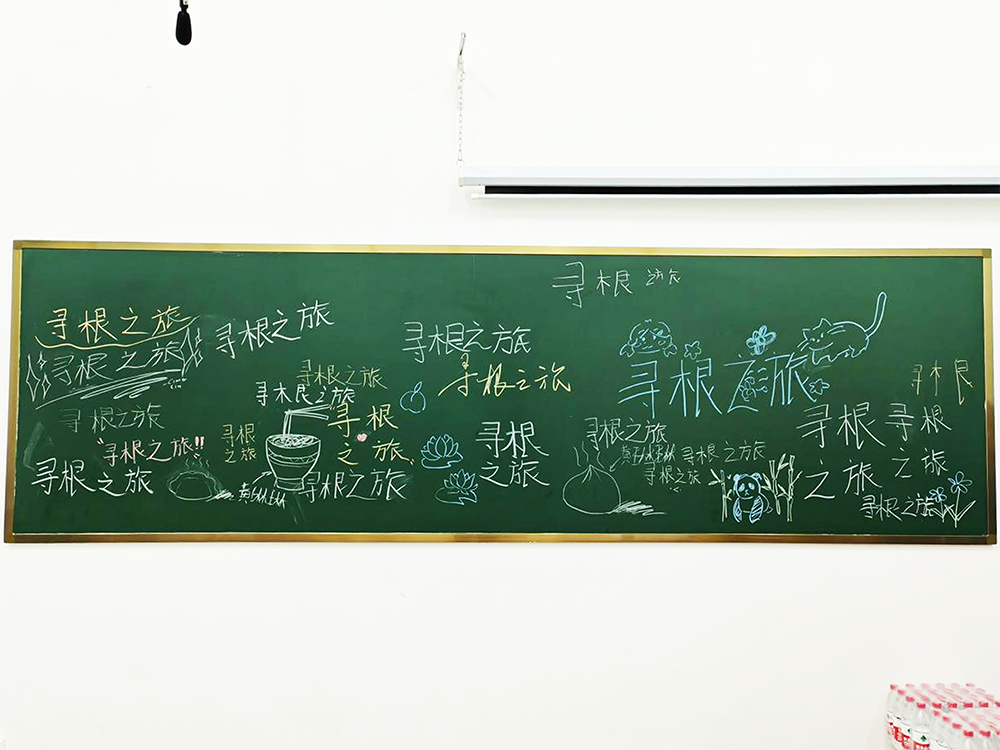 寻根之旅
寻根之旅
寻根之旅
"寻根之旅"!!
寻根之旅
寻根之旅
寻根之旅
寻根之旅
寻根
之旅
寻根
之旅
寻根之旅
寻根之旅
寻根之旅
寻根
之旅
寻根之旅
寻根之旅
寻根之旅
寻根之旅
寻根之旅
寻根
之旅
寻根
之旅
寻根
寻根之旅